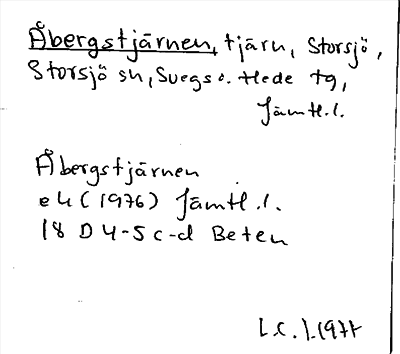 Åbergstjärnen, tjärn, Storsjö,
Storsjö sn, Svegs o. Hede tg,
Jämtl.l.
Åbergstjärnen
ek (1976) Jämtl.l.
18 D 4-5 c-d Beten
L.C.J. 1977